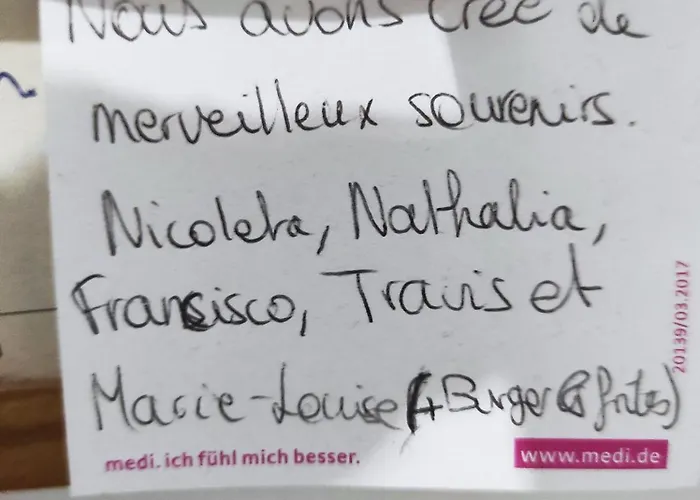 Nous avons créé de
merveilleux souvenirs.
Nicoleta, Nathalia,
Francisco, Travis et
Marie-Louise (+ Burger & frites)
medi. ich fühl mich besser.
www.medi.de
20139/03.2017